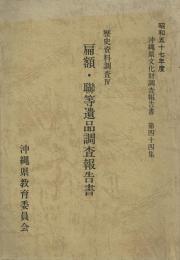 昭和五十七年度
沖縄県文化財調査報告書 第四十四集
歴史資料調査Ⅳ
扁額・聯等遺品調査報告書
沖縄県教育委員会